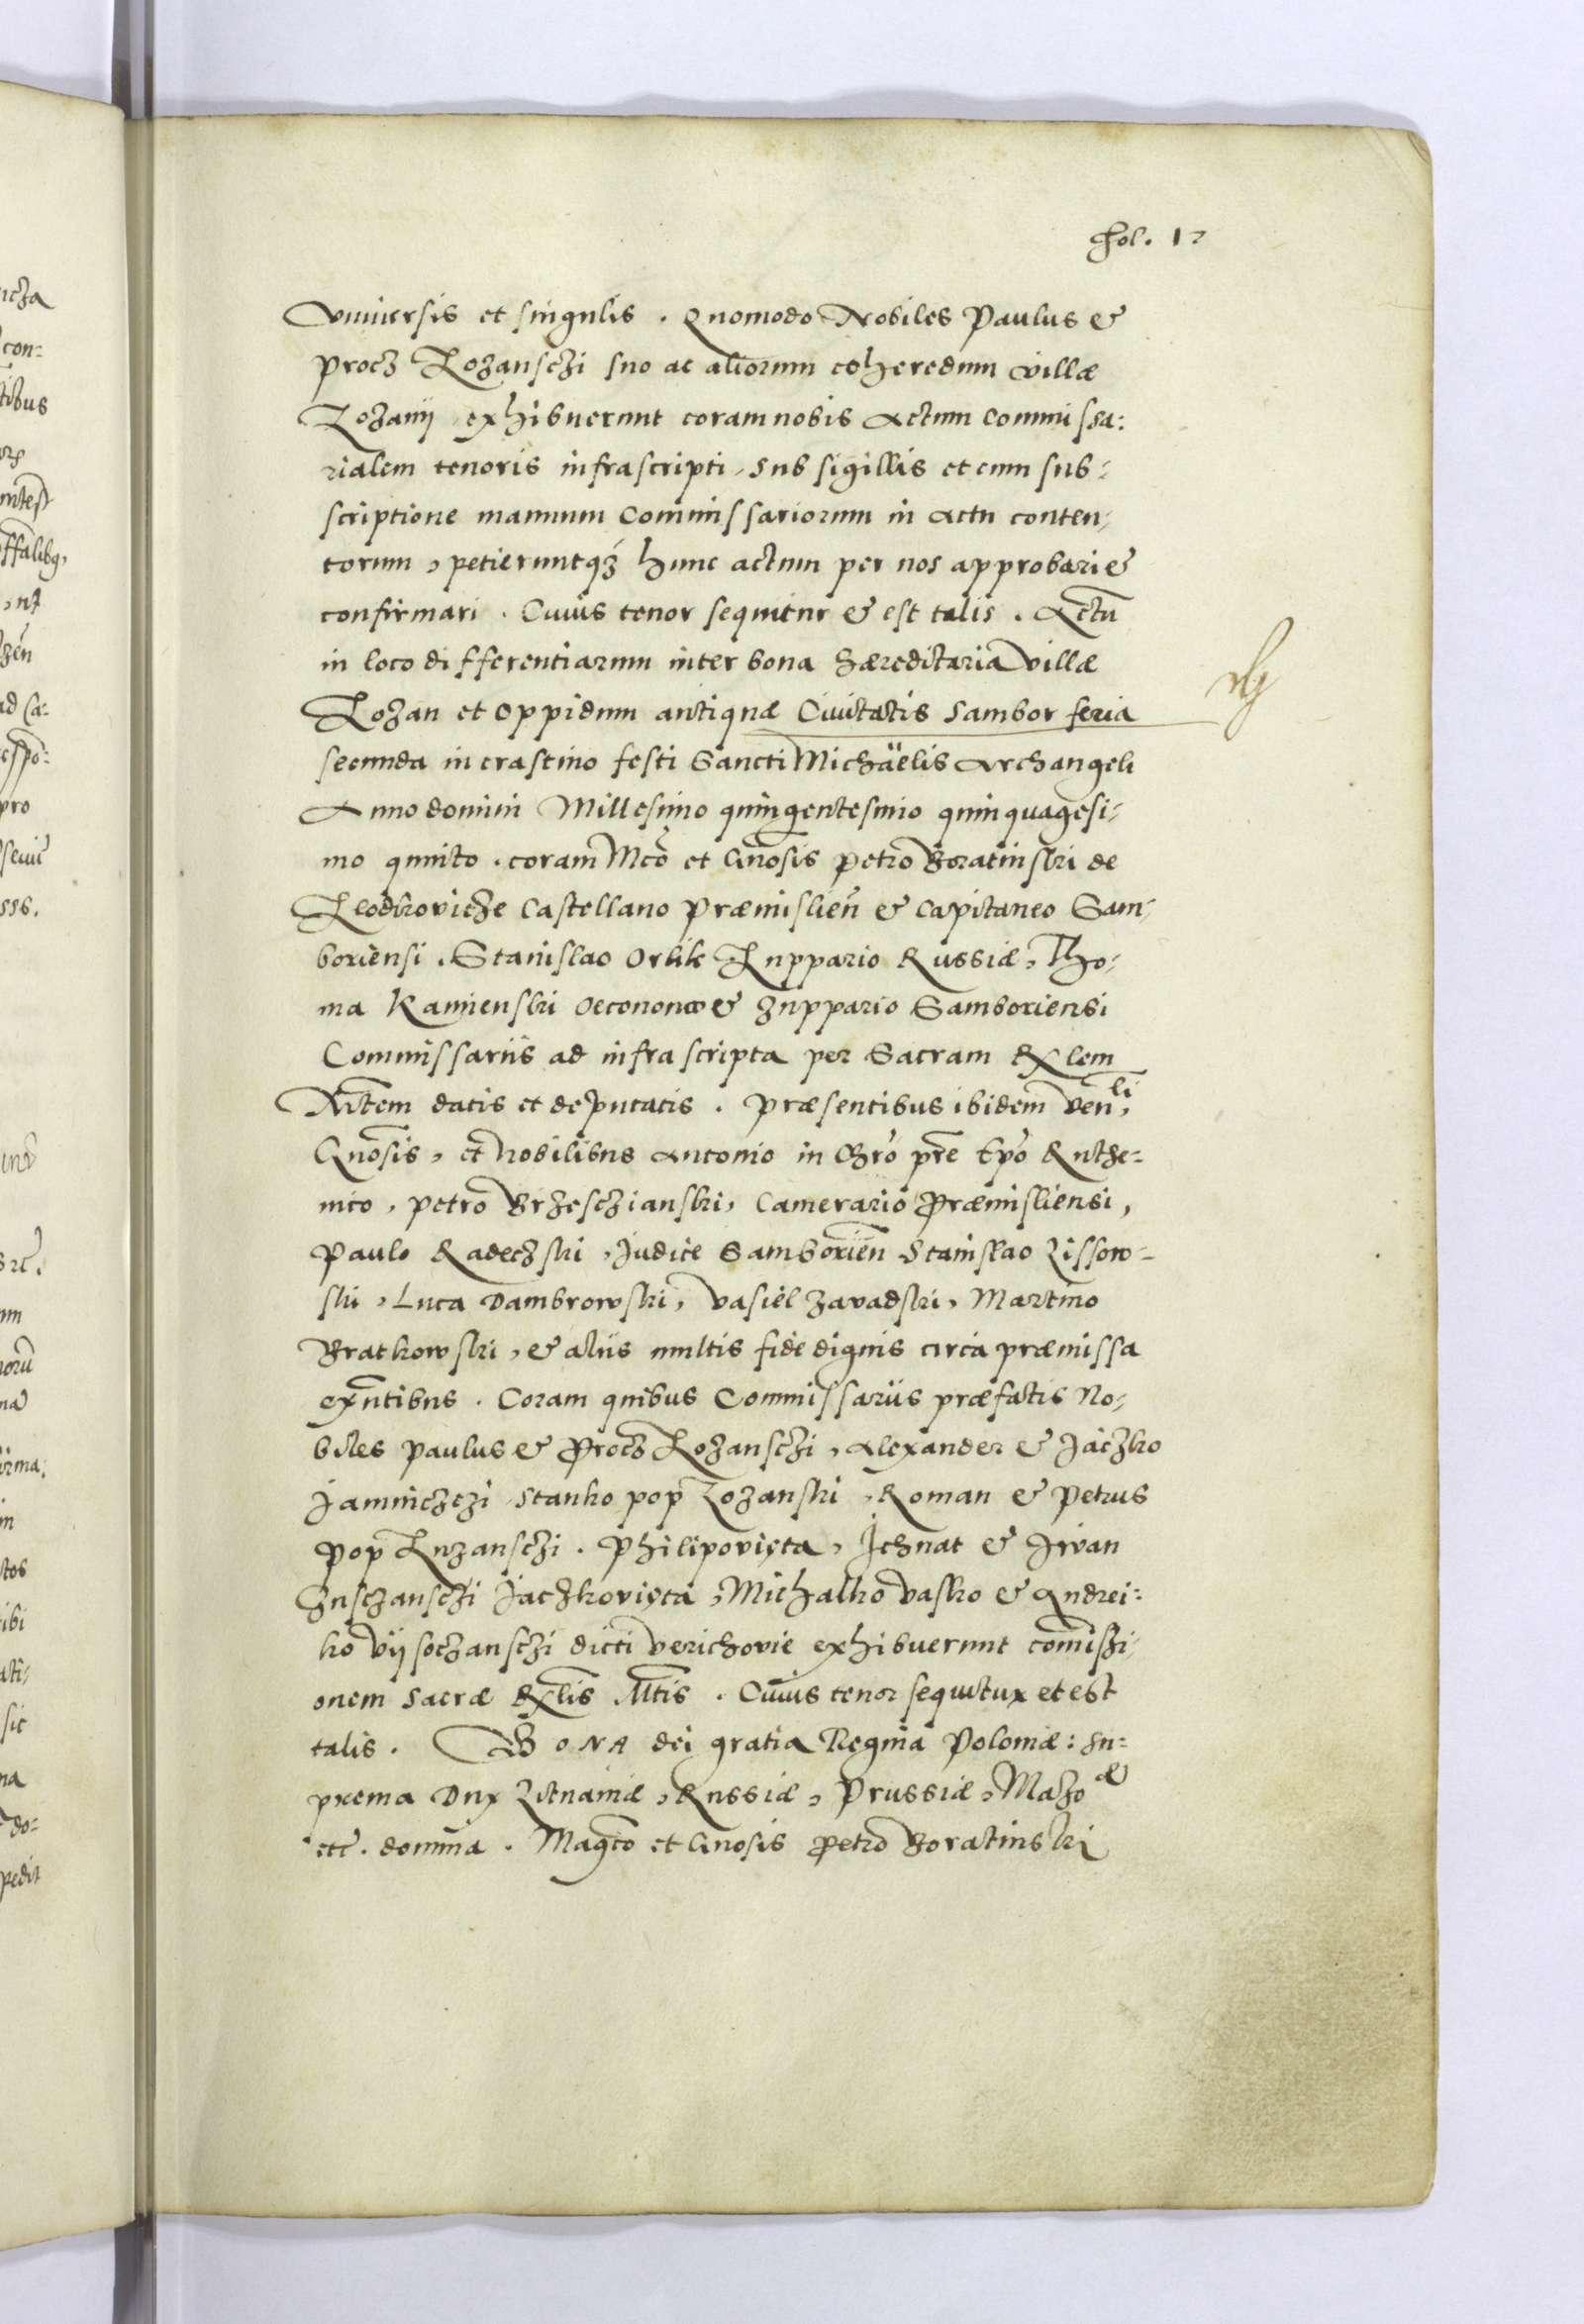 fol. 1
Vniuersis et singulis . Quomodo Nobiles Paulus &
procz Lozansczi suo ac aliorum coheredum villæ
Lozanij exhibuerunt coram nobis Actum Commissa:
rialem tenoris infrascripti, sub sigillis et cum sub-
scriptione manuum Commissariorum in actu conten-
torum, petieruntqz hunc actum per nos approbari &
confirmari . Cuius tenor sequitur & est talis . Actū
in loco differentiarum inter bona hæreditaria villæ
Lozan et oppidum antiquæ Ciuitatis Sambor feria
secunda in crastino festi Sancti Michäelis Archangeli
Anno domini Millesimo quingentesimo quinquagesi-
mo quinto . coram Mco et Gnosis Petro Boratinski de
Castellano Præmislien & Capitaneo Sam-
boriensi . Stanislao Orlik Zuppario Russiæ, Tho-
ma Kamienski Oeconomo & Zuppario Samboriensi
Commissariis ad infrascripta per Sacram Rxlem
Mtem datis et deputatis . Præsentibus ibidem venli,
Gnosis, et Nobilibus Antonio in Chro pre Epo Ruthe-
nico, Petro Brzesczianski, Camerario Præmisliensi,
Paulo Radeczski, Judice Samborien Stanislao Lissow-
ski, Luca Dambrowski, Vasiel Zavadski, Martino
Bratkowski, & aliis multis fide dignis circa præmissa
exntibus . Coram quibus Commissariis præfatis No-
biles Paulus & Procz Lozansczi, Alexander & Jaczko
Stanko pop Lozanski, Roman & Petrus
Pop Luzansczi . Philipovięta, Ichnat & Iwan
Jaczkovięta, Michalko Vasko & Andrei-
ko Vijsoczansczi dicti Verichovie exhibuerunt comissi-
onem Sacræ Rxlis Mtis . Cuius tenor sequitur et est
talis . BONA dei gratia Regina Poloniæ: su-
prema Dux Lituaniæ, Russiæ, Prussiæ, Mazoæ
etc . domina . Magco et Gnosis Petro Boratinski